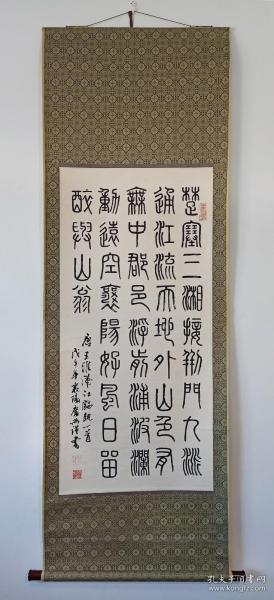 楚塞三湘接荊門九派
通江流天地外山色有
無中郡邑浮前浦波瀾
動遠空襄陽好風日留
醉與山翁
唐王維漢江臨眺一首
戊子 書
孔夫子旧书网